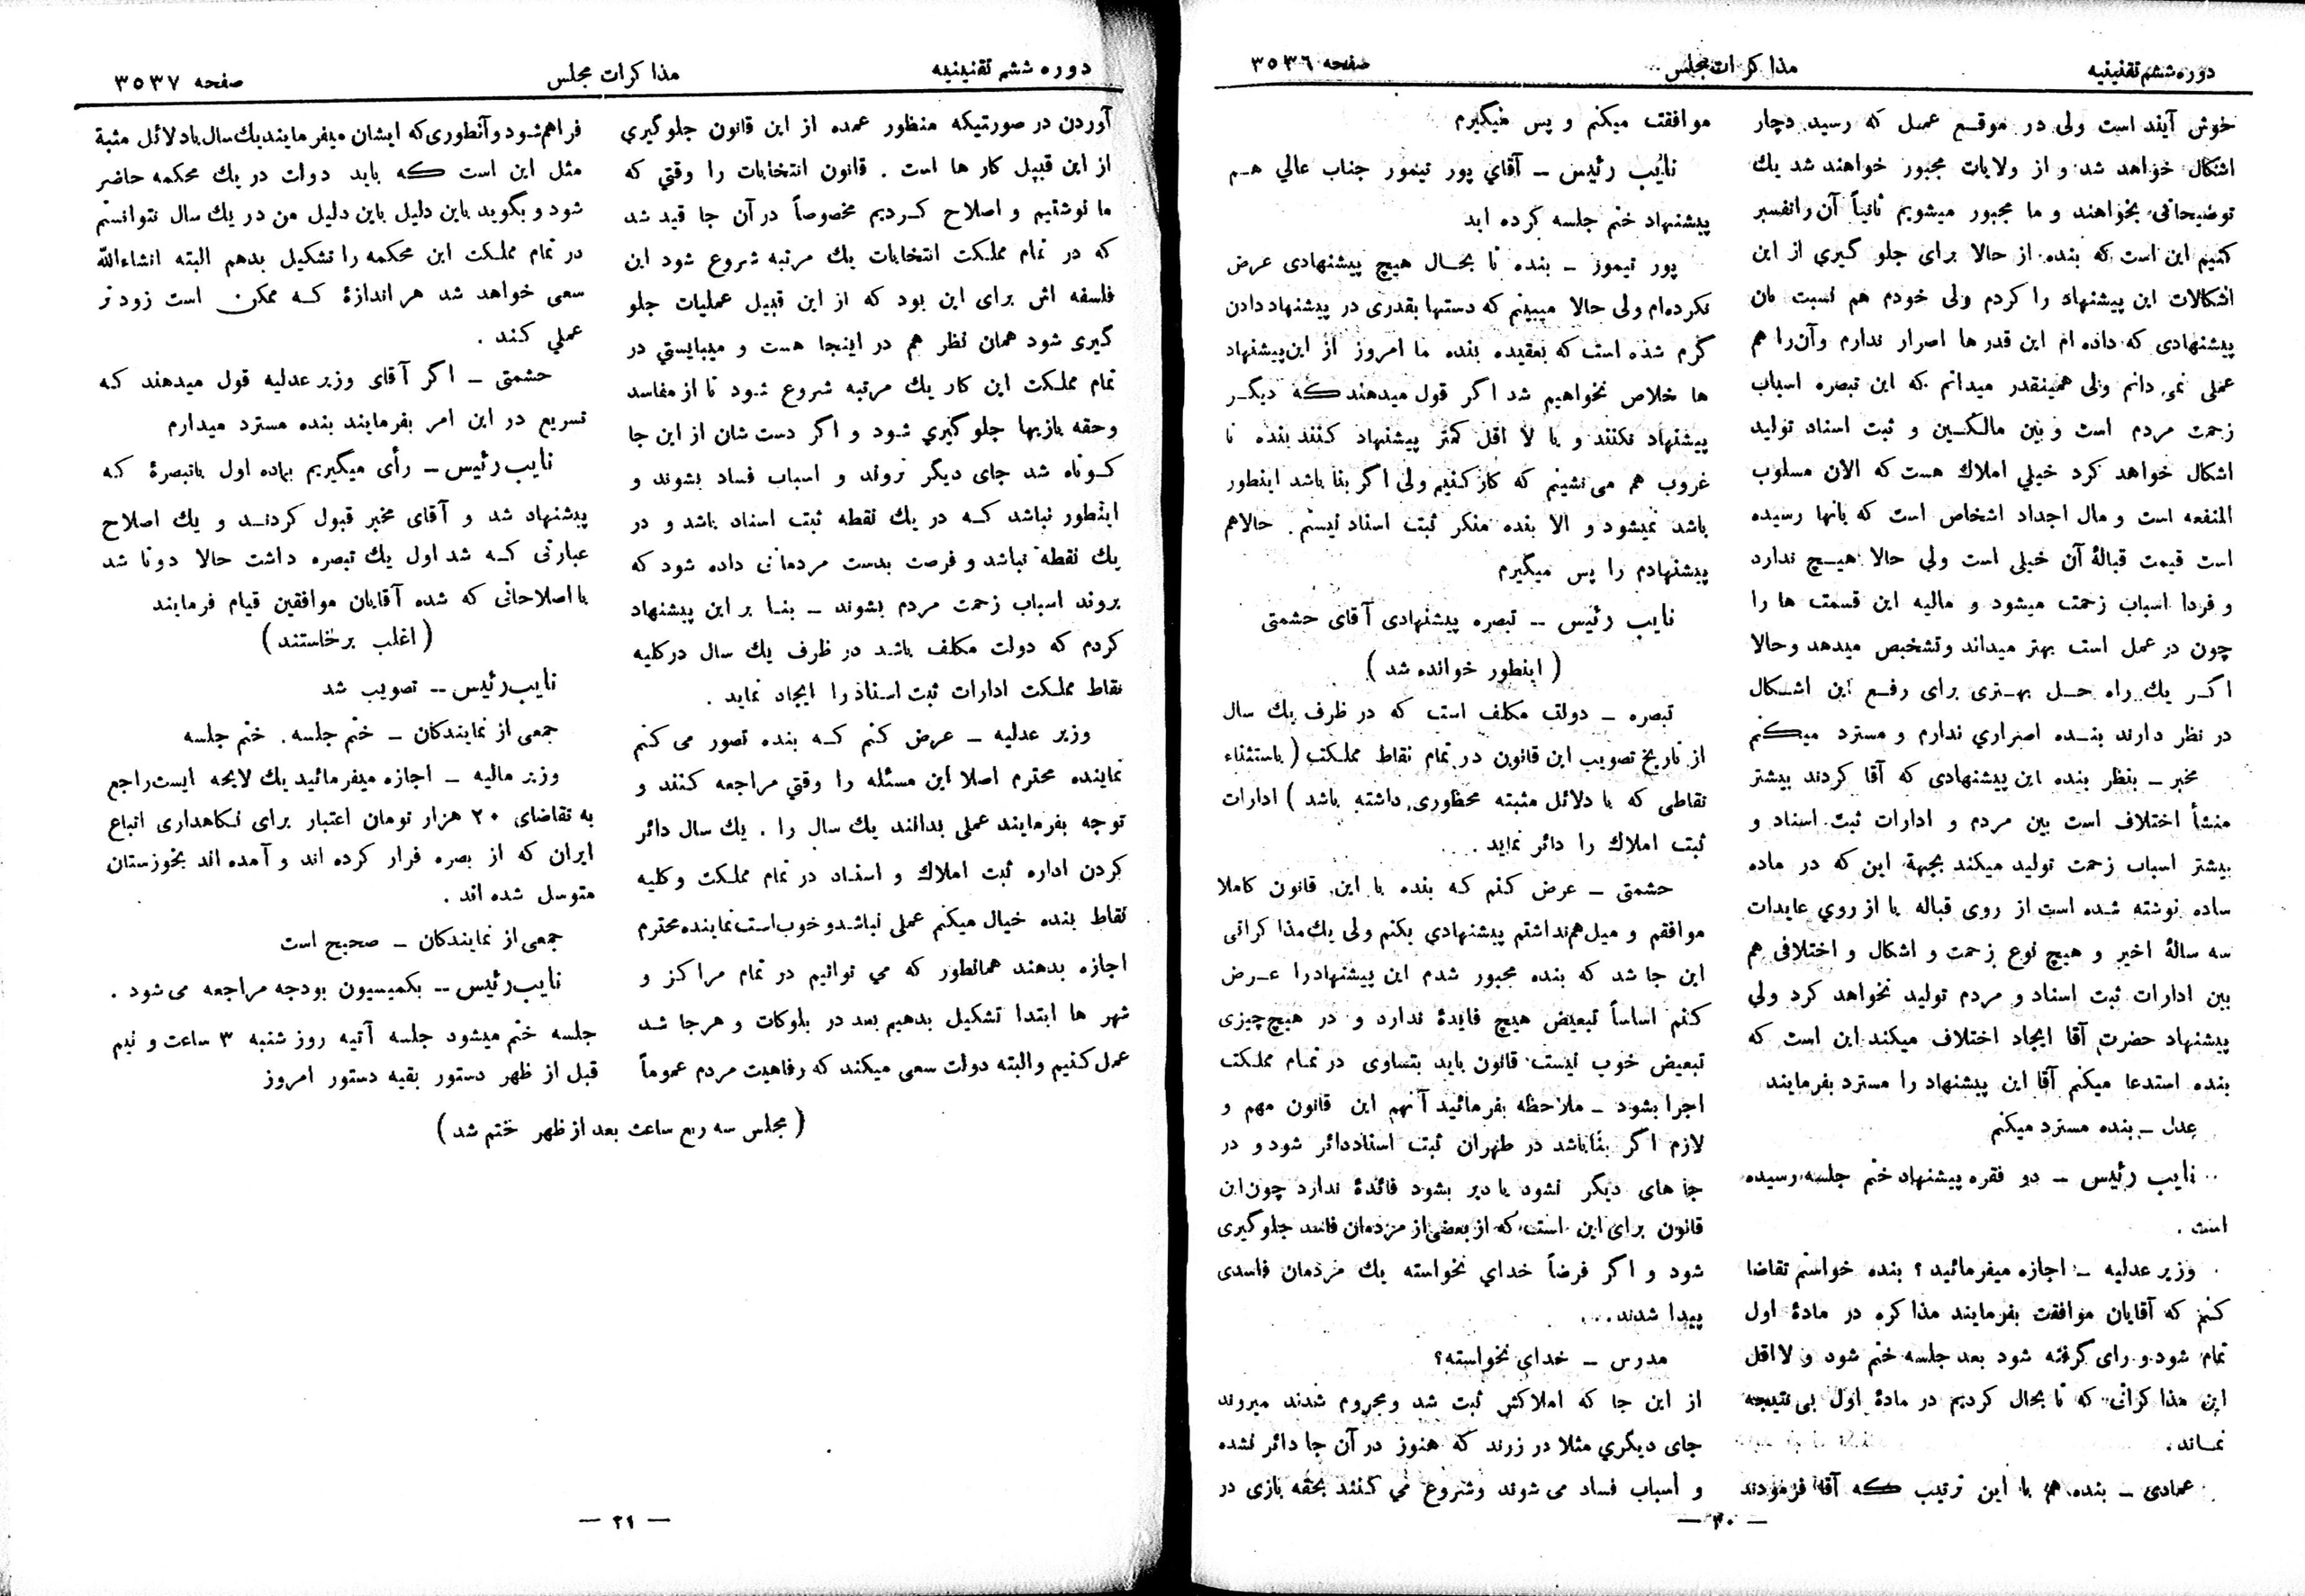 دوره ششم تقنینیه
مذاکرات مجلس
صفحه ۳۵۳۶
خوش آیند است ولی در موقع عمل که رسید دچار
اشکال خواهد شد و از ولایات مجبور خواهند شد یك
توضیحاتی بخواهند و ما مجبور میشویم ثانیاً آن را تفسیر
کنیم این است که بنده از حالا برای جلو گیری از این
اشکالات این پیشنهاد را کردم ولی خودم هم نسبت بان
پیشنهادی که داده ام این قدر ها اصرار ندارم و آن را هم
عملی نمی دانم ولی همینقدر میدانم که این تبصره اسباب
زحمت مردم است و بین مالکین و ثبت اسناد تولید
اشکال خواهد کرد خیلی املاك هست که الان مسلوب
المنفعه است و مال اجداد اشخاص است که بانها رسیده
است قیمت قبالهٔ آن خیلی است ولی حالا هیچ ندارد
و فردا اسباب زحمت میشود و مالیه این قسمت ها را
چون در عمل است بهتر میداند و تشخیص میدهد و حالا
اگر یك راه حل بهتری برای رفع این اشکال
در نظر دارند بنده اصراری ندارم و مسترد میکنم
مخبر ــ بنظر بنده این پیشنهادی که آقا کردند بیشتر
منشأ اختلاف است بین مردم و ادارات ثبت اسناد و
بیشتر اسباب زحمت تولید میکند بجهة این که در ماده
ساده نوشته شده است از روی قباله یا از روی عایدات
سه سالهٔ اخیر و هیچ نوع زحمت و اشکال و اختلافی هم
بین ادارات ثبت اسناد و مردم تولید نخواهد کرد ولی
پیشنهاد حضرت آقا ایجاد اختلاف میکند این است که
بنده استدعا میکنم آقا این پیشنهاد را مسترد بفرمایند
عدل ــ بنده مسترد میکنم
نایب رئیس ــ دو فقره پیشنهاد ختم جلسه رسیده
است .
وزیر عدلیه ــ اجازه میفرمائید ؟ بنده خواستم تقاضا
کنم که آقایان موافقت بفرمایند مذاکره در مادهٔ اول
تمام شود و رای گرفته شود بعد جلسه ختم شود و لااقل
این مذاکراتی که تا بحال کردیم در مادهٔ اول بی نتیجه
نماند .
عمادی ــ بنده هم با این ترتیب که آقا فرمودند
موافقت میکنم و پس میگیرم
نایب رئیس ــ آقای پور تیمور جناب عالی هم
پیشنهاد ختم جلسه کرده اید
پور تیمور ــ بنده تا بحال هیچ پیشنهادی عرض
نکرده‌ام ولی حالا میبینم که دستها بقدری در پیشنهاد دادن
گرم شده است که بعقیده بنده ما امروز از این پیشنهاد
ها خلاص نخواهیم شد اگر قول میدهند که دیگر
پیشنهاد نکنند و یا لا اقل کمتر پیشنهاد کنند بنده تا
غروب هم می نشینم که کار کنیم ولی اگر بنا باشد اینطور
باشد نمیشود و الا بنده منکر ثبت اسناد نیستم . حالا هم
پیشنهادم را پس میگیرم
نایب رئیس ــ تبصره پیشنهادی آقای حشمتی
( اینطور خوانده شد )
تبصره ــ دولت مکلف است که در ظرف یك سال
از تاریخ تصویب این قانون در تمام نقاط مملکت ( باستثناء
نقاطی که با دلائل مثبته محظوری داشته باشد ) ادارات
ثبت املاك را دائر نماید .
حشمتی ــ عرض کنم که بنده با این قانون کاملا
موافقم و میل هم نداشتم پیشنهادی بکنم ولی یك مذاکراتی
این جا شد که بنده مجبور شدم این پیشنهاد را عرض
کنم اساساً تبعیض هیچ فایدهٔ ندارد و در هیچ چیزی
تبعیض خوب نیست قانون باید بتساوی در تمام مملکت
اجرا بشود ــ ملاحظه بفرمائید آنهم این قانون مهم و
لازم اگر بنا باشد در طهران ثبت اسناد دائر شود و در
جا های دیگر نشود یا دیر بشود فائدهٔ ندارد چون این
قانون برای این است که از بعضی از مردمان فاسد جلوگیری
شود و اگر فرضاً خدای نخواسته یك مردمان فاسدی
پیدا شدند...
مدرس ــ خدای نخواسته؟
از این جا که املاکش ثبت شد و محروم شدند میروند
جای دیگری مثلا در زرند که هنوز در آن جا دائر نشده
و اسباب فساد می شوند و شروع می کنند بحقه بازی در
— ۳۰ —
دوره ششم تقنینیه
مذاکرات مجلس
صفحه ۳۵۳۷
آوردن در صورتیکه منظور عمده از این قانون جلوگیری
از این قبیل کار ها است . قانون انتخابات را وقتی که
ما نوشتیم و اصلاح کردیم مخصوصاً در آن جا قید شد
که در تمام مملکت انتخابات یك مرتبه شروع شود این
فلسفه اش برای این بود که از این قبیل عملیات جلو
گیری شود همان نظر هم در اینجا هست و میبایستی در
تمام مملکت این کار یك مرتبه شروع شود تا از مفاسد
و حقه بازیها جلوگیری شود و اگر دست شان از این جا
کوتاه شد جای دیگر نروند و اسباب فساد بشوند و
اینطور نباشد که در یك نقطه ثبت اسناد باشد و در
یك نقطه نباشد و فرصت بدست مردمانی داده شود که
بروند اسباب زحمت مردم بشوند ــ بنا بر این پیشنهاد
کردم که دولت مکلف باشد در ظرف یك سال در کلیه
نقاط مملکت ادارات ثبت اسناد را ایجاد نماید .
وزیر عدلیه ــ عرض کنم که بنده تصور می کنم
نماینده محترم اصلا این مسئله را وقتی مراجعه کنند و
توجه بفرمایند عملی بدانند یك سال را . یك سال دائر
کردن اداره ثبت املاك و اسناد در تمام مملکت و کلیه
نقاط بنده خیال میکنم عملی نباشد و خوب است نماینده محترم
اجازه بدهند همانطور که می توانیم در تمام مراکز و
شهر ها ابتدا تشکیل بدهیم بعد در بلوکات و هر جا شد
عمل کنیم و البته دولت سعی میکند که رفاهیت مردم عموماً
فراهم شود و آنطوری که ایشان میفرمایند یك سال با دلائل مثبة
مثل این است که باید دولت در یك محکمه حاضر
شود و بگوید باین دلیل باین دلیل من در یك سال نتوانستم
در تمام مملکت این محکمه را تشکیل بدهم البته انشاءالله
سعی خواهد شد هر اندازهٔ که ممکن است زود تر
عملی کند .
حشمتی ــ اگر آقای وزیر عدلیه قول میدهند که
تسریع در این امر بفرمایند بنده مسترد میدارم
نایب رئیس ــ رأی میگیریم بماده اول باتبصرهٔ که
پیشنهاد شد و آقای مخبر قبول کردند و یك اصلاح
عبارتی که شد اول یك تبصره داشت حالا دو تا شد
با اصلاحاتی که شده آقایان موافقین قیام فرمایند
( اغلب برخاستند )
نایب رئیس ــ تصویب شد
جمعی از نمایندگان ــ ختم جلسه . ختم جلسه
وزیر مالیه ــ اجازه میفرمائید یك لایحه ایست راجع
به تقاضای ۲۰ هزار تومان اعتبار برای نگاهداری اتباع
ایران که از بصره فرار کرده اند و آمده اند بخوزستان
متوسل شده اند .
جمعی از نمایندگان ــ صحیح است
نایب رئیس ــ بکمیسیون بودجه مراجعه می شود .
جلسه ختم میشود جلسه آتیه روز شنبه ۳ ساعت و نیم
قبل از ظهر دستور بقیه دستور امروز
( مجلس سه ربع ساعت بعد از ظهر ختم شد )
— ۳۱ —